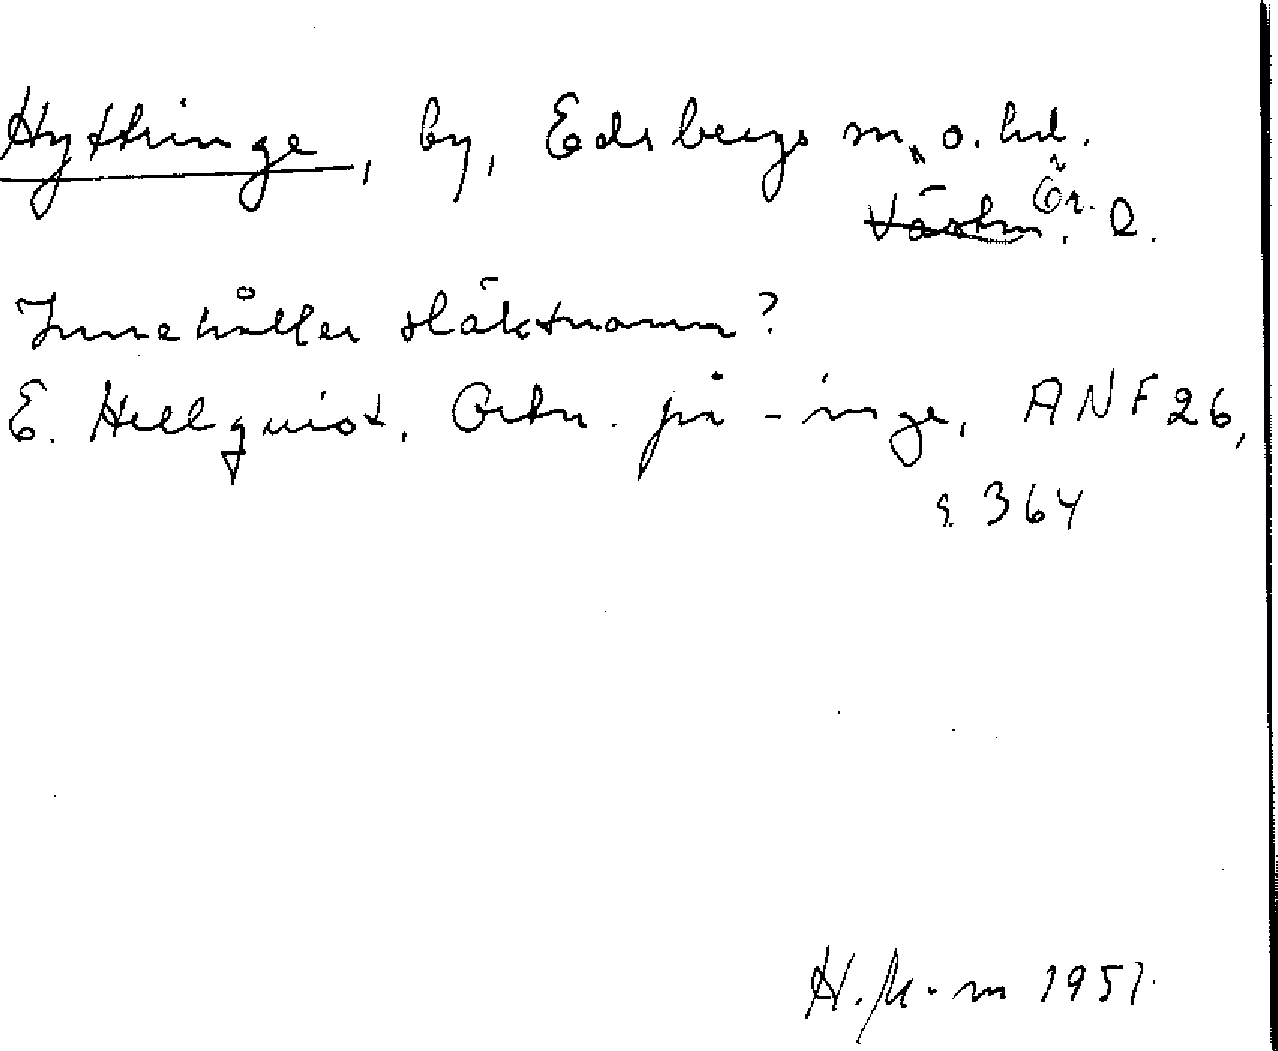 Hyttringe, by, Edsbergs sn o. hd.
Västm. Ör. l.
Innehåller släktnamn?
E. Hellquist. Ortn. på -inge, ANF 26,
s. 364
H. M-m 1951.